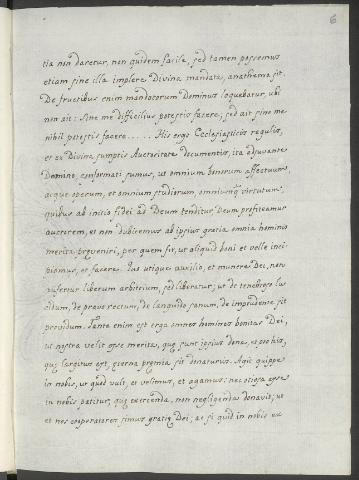 6
tia non daretur, non quidem facile, sed tamen possemus
etiam sine illa implere Divina mandata, anathema sit.
De fructibus enim mandatorum Dominus loquebatur, ubi
non ait: Sine me difficilius potestis facere; sed ait sine me
nihil potestis facere..... His ergo Ecclesiasticis regulis,
et ex Divina sumptis Auctoritate documentis, ita adjuvante
Domino, confirmati sumus, ut omnium bonorum affectuum,
atque operum, et omnium studiorum, omniumq; virtutum,
quibus ab initio fidei ad Deum tenditur, Deum profiteamur
auctorem, et non dubitemus ab ipsius gratia omnia hominis
merita præveniri, per quem fit, ut aliquid boni et velle inci
piamus, et facere. Quo utique auxilio, et munere Dei, non
aufertur liberum arbitrium, sed liberatur, ut de tenebroso lu
cidum, de pravo rectum, de languido sanum, de imprudente sit
providum. Tanta enim est erga omnes homines bonitas Dei,
ut nostra velit esse merita, quę sunt ipsius dona, et pro his,
quę largitus est, ęterna pręmia sit donaturus. Agit quippe
in nobis, ut quod vult, et velimus, et agamus: nec otiosa esse
in nobis patitur, quę exercenda, non negligenda donavit; ut
et nos cooperatores simus gratię Dei; ac si quid in nobis ex